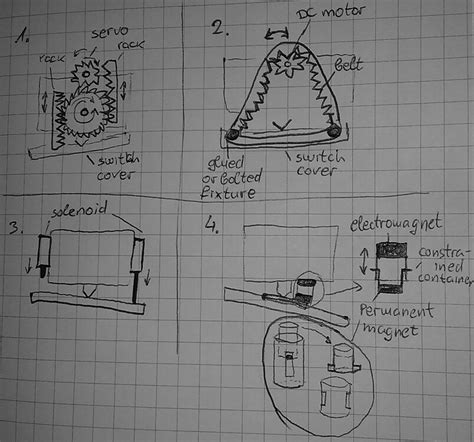 1.
servo
rack
rack
switch
cover
2.
DC motor
belt
glued
or bolted
fixture
switch
cover
3.
solenoid
4.
electromagnet
constra-
ined
container
Permanent
magnet